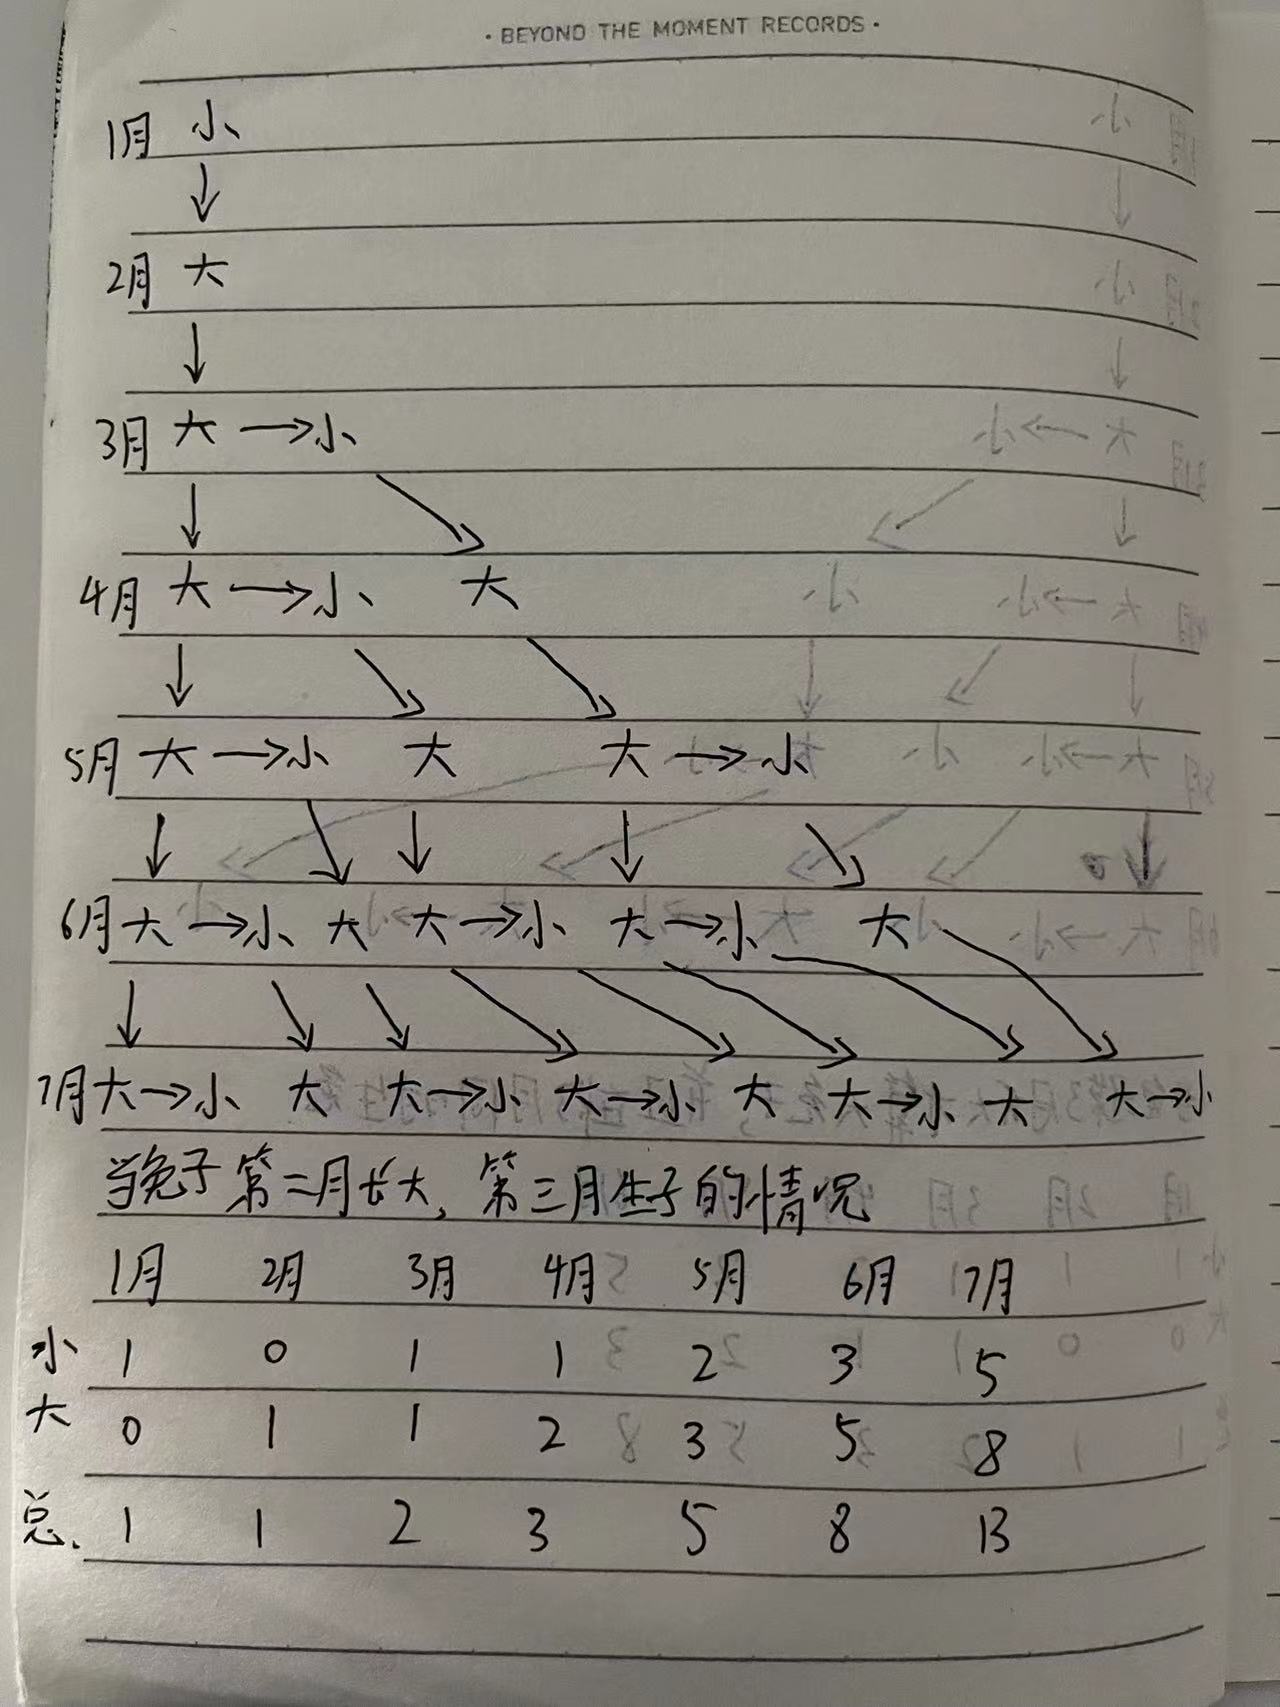 · BEYOND THE MOMENT RECORDS ·
1月 小
↓
2月 大
↓
3月 大 → 小
↓ ↘
4月 大 → 小 大
↓ ↘ ↘
5月 大 → 小 大 大 → 小
↓ ↘ ↓ ↓ ↘
6月 大 → 小 大 大 → 小 大 → 小 大
↓ ↘ ↘ ↘ ↘ ↘ ↘ ↘
7月 大 → 小 大 大 → 小 大 → 小 大 大 → 小 大 大 → 小
当兔子第二月长大,第三月生子的情况
1月 2月 3月 4月 5月 6月 7月
小 1 0 1 1 2 3 5
大 0 1 1 2 3 5 8
总. 1 1 2 3 5 8 13